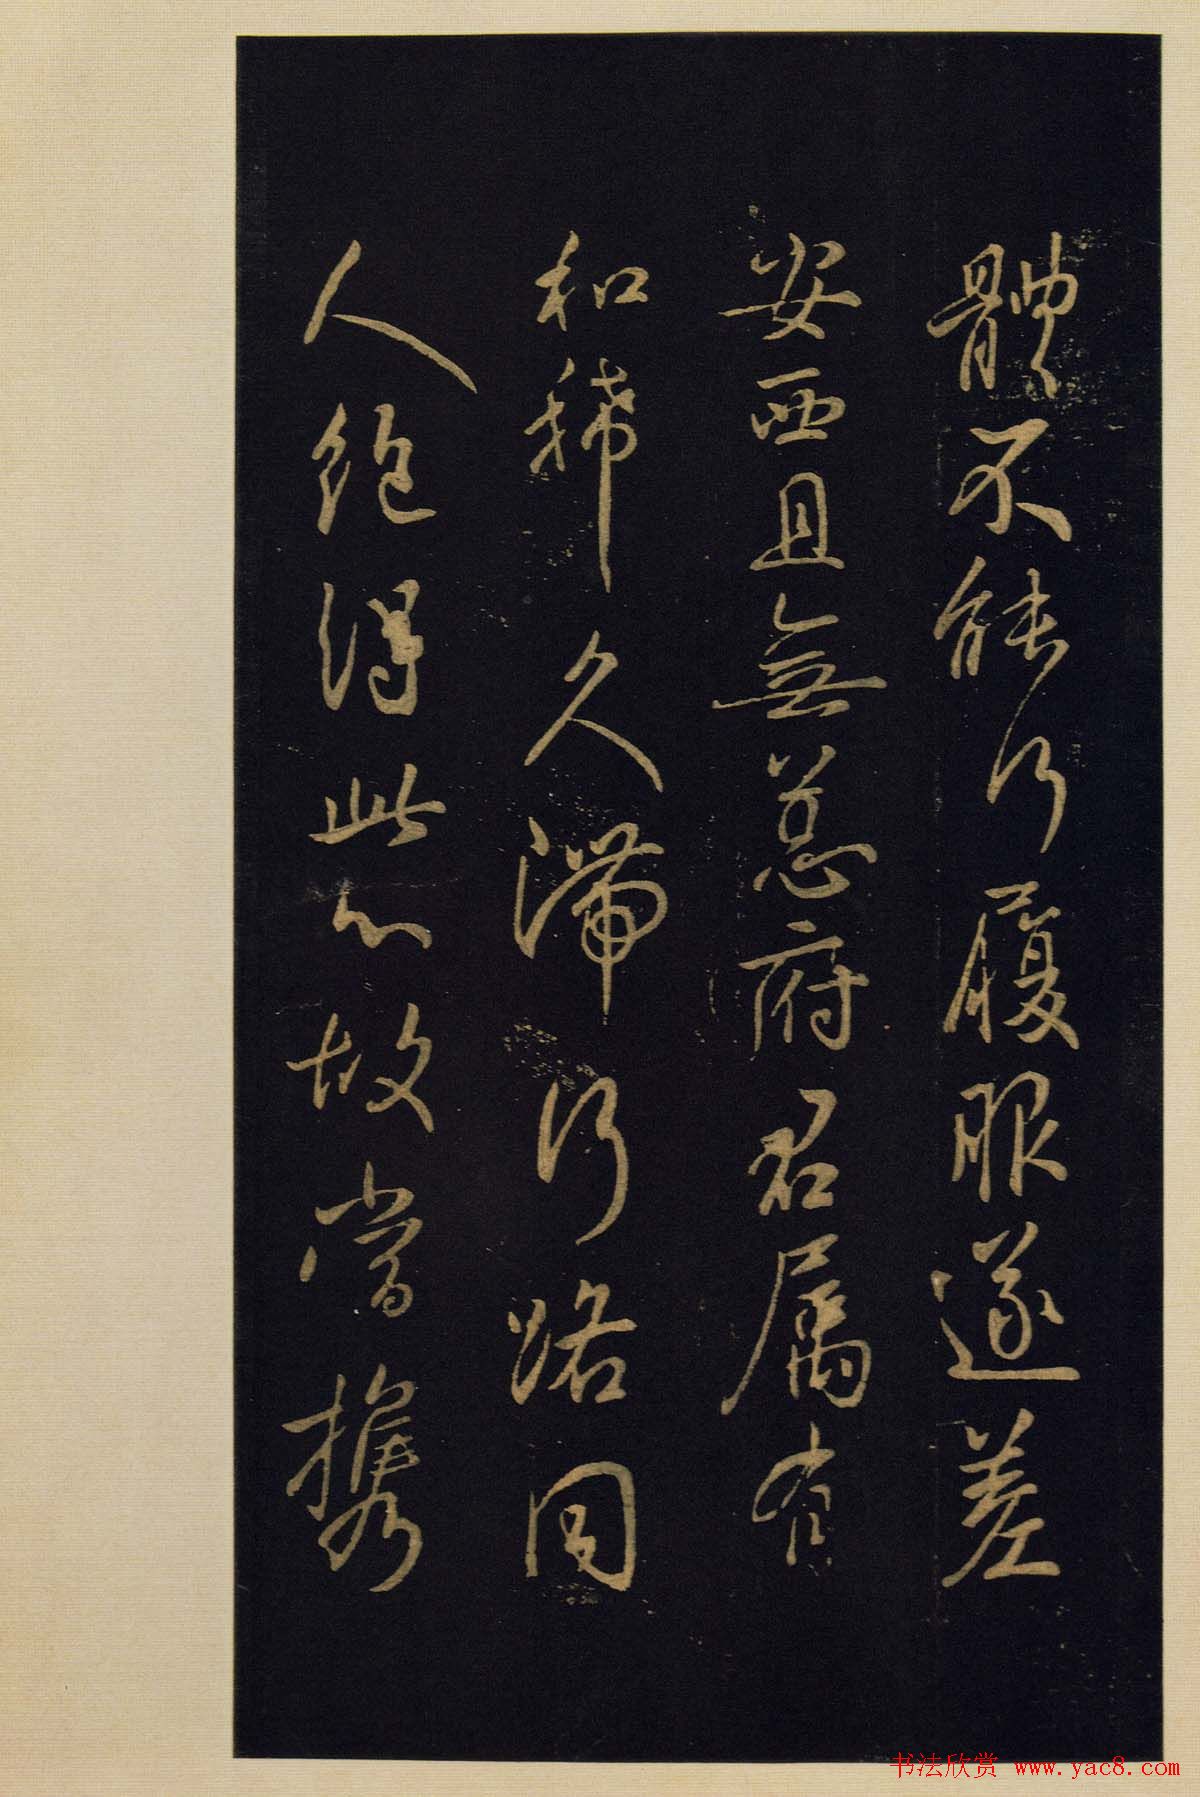 體不能行履眼遂差
安西且無恙府君属有
和稀久滞行路同
人飽得此心故嘗攜
书法欣赏 www.yac8.com